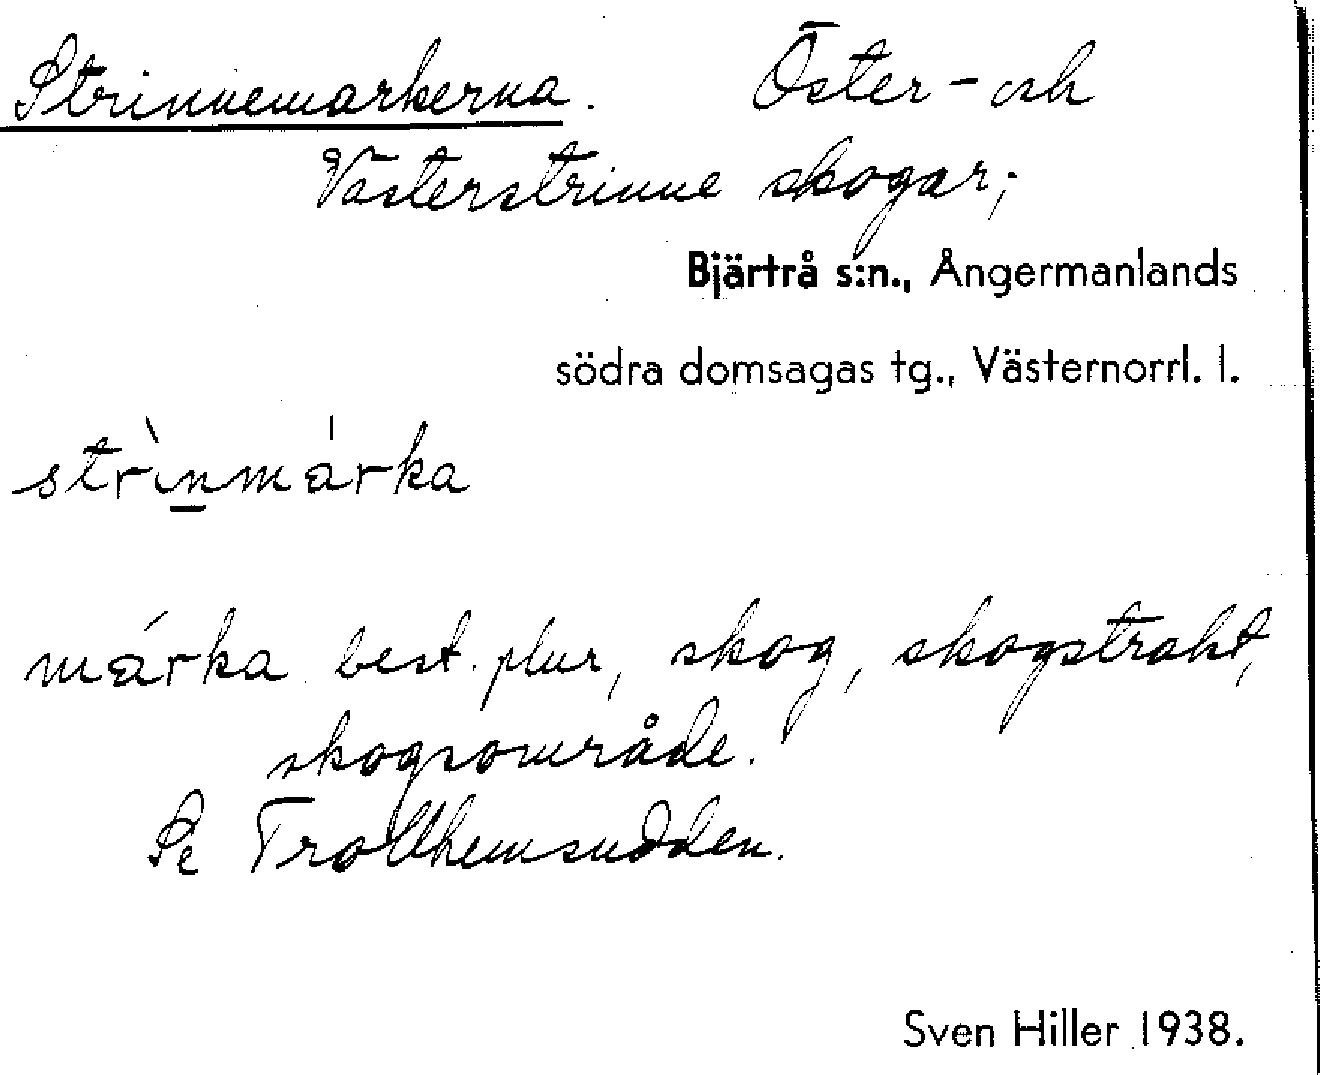 Strinnemarkerna. Öster- och
Västerstrinne skogar;
Bjärtrå s:n., Ångermanlands
södra domsagas tg., Västernorrl. l.
strìn̲márka
márka best. plur, skog, skogstrakt,
skogsområde.
Se Trollhemsudden.
Sven Hiller 1938.